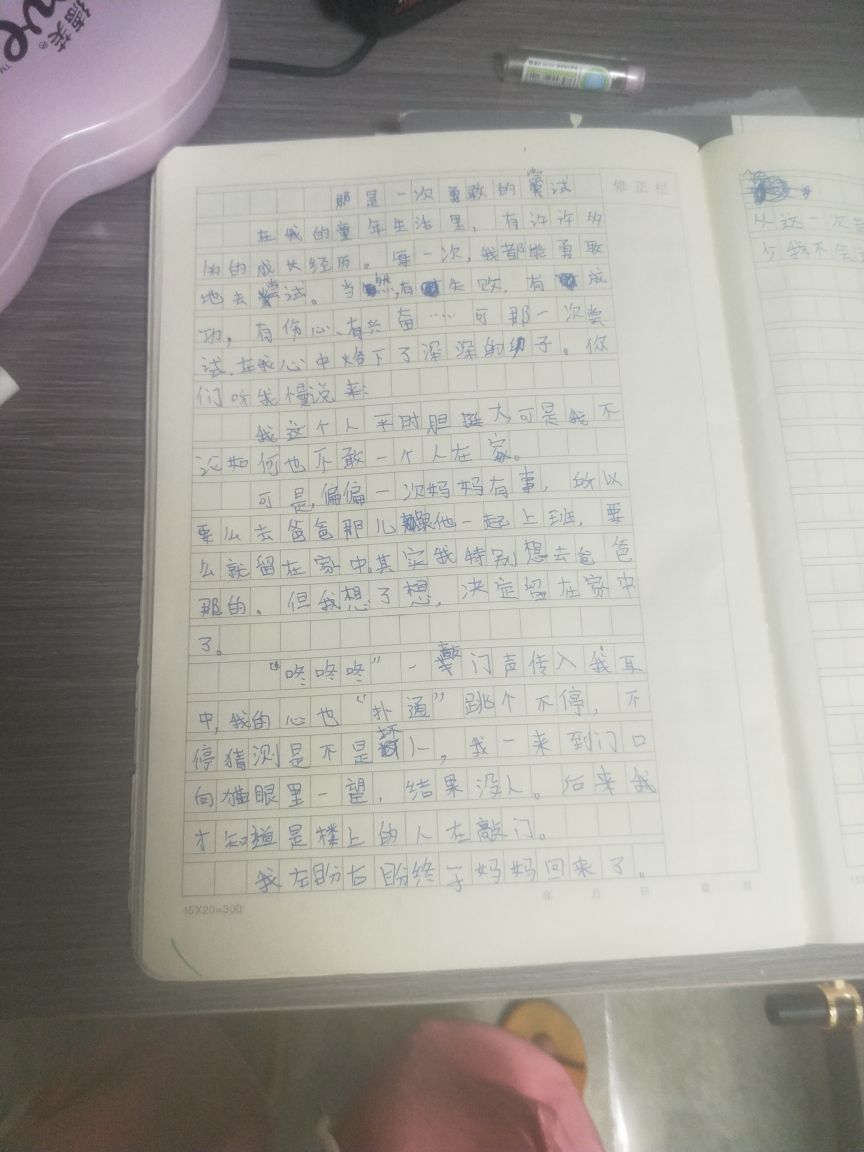 那是一次勇敢的尝试
修正栏
在我的童年生活里，有许许多
多的成长经历。每一次，我都能勇敢
地去尝试。当然，有失败，有成
功，有伤心、有兴奋……可那一次尝
试，在我心中烙下了深深的印子。你
们听我慢说来：
我这个人平时胆挺大，可是我不
论如何也不敢一个人在家。
可是，偏偏一次妈妈有事，所以
要么去爸爸那儿跟他一起上班，要
么就留在家中。其实我特别想去爸爸
那的。但我想了想，决定留在家中
了。
“咚咚咚”一敲门声传入我耳
中，我的心也“扑通”跳个不停，不
停猜测是不是坏人，我一来到门口
向猫眼里一望，结果没人。后来我
才知道是楼上的人在敲门。
我左盼右盼终于妈妈回来了。
15X20=300
年 月 日
从这一次
我不会